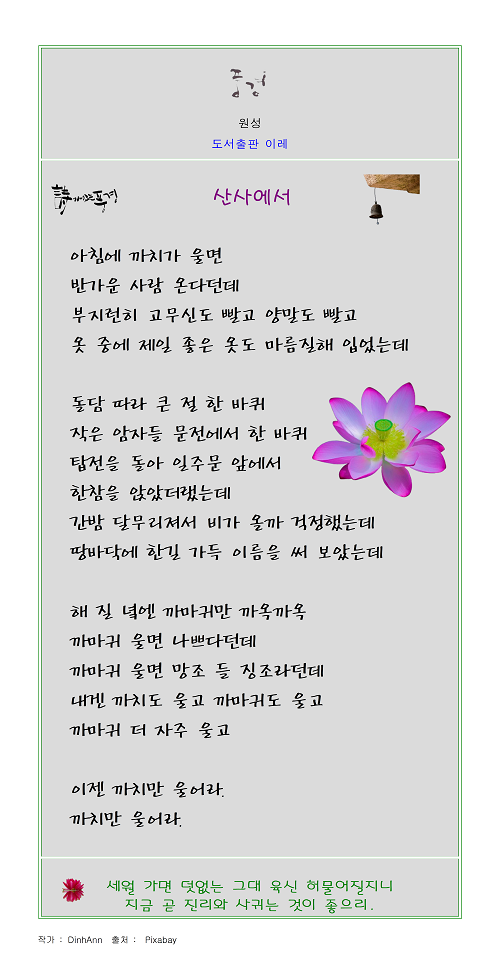 풍경
원성
도서출판 이레
詩가있는풍경
산사에서
아침에 까치가 울면
반가운 사람 온다던데
부지런히 고무신도 빨고 양말도 빨고
옷 중에 제일 좋은 옷도 마름질해 입었는데
돌담 따라 큰 절 한 바퀴
작은 암자들 문전에서 한 바퀴
탑전을 돌아 일주문 앞에서
한참을 앉았더랬는데
간밤 달무리져서 비가 올까 걱정했는데
땅바닥에 한길 가득 이름을 써 보았는데
해 질 녘엔 까마귀만 까옥까옥
까마귀 울면 나쁘다던데
까마귀 울면 망조 들 징조라던데
내겐 까치도 울고 까마귀도 울고
까마귀 더 자주 울고
이젠 까치만 울어라.
까치만 울어라.
세월 가면 덧없는 그대 육신 허물어질지니
지금 곧 진리와 사귀는 것이 좋으리.
작가 : DinhAnn 출처 : Pixabay